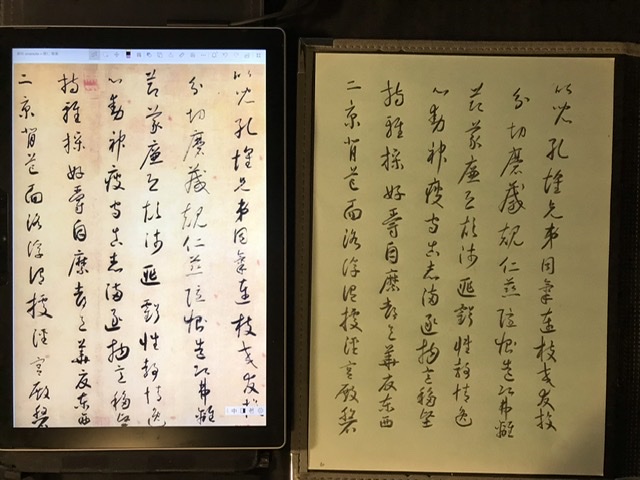 比兒孔懷兄弟同氣連枝交友投
分切磨箴規仁慈隱惻造次弗離
節義廉退顛沛匪虧性靜情逸
心動神疲守真志滿逐物意移堅
持雅操好爵自縻都邑華夏東西
二京背芒面洛浮渭據涇宮殿磐
比兒孔懷兄弟同氣連枝交友投
分切磨箴規仁慈隱惻造次弗離
節義廉退顛沛匪虧性靜情逸
心動神疲守真志滿逐物意移堅
持雅操好爵自縻都邑華夏東西
二京背芒面洛浮渭據涇宮殿磐